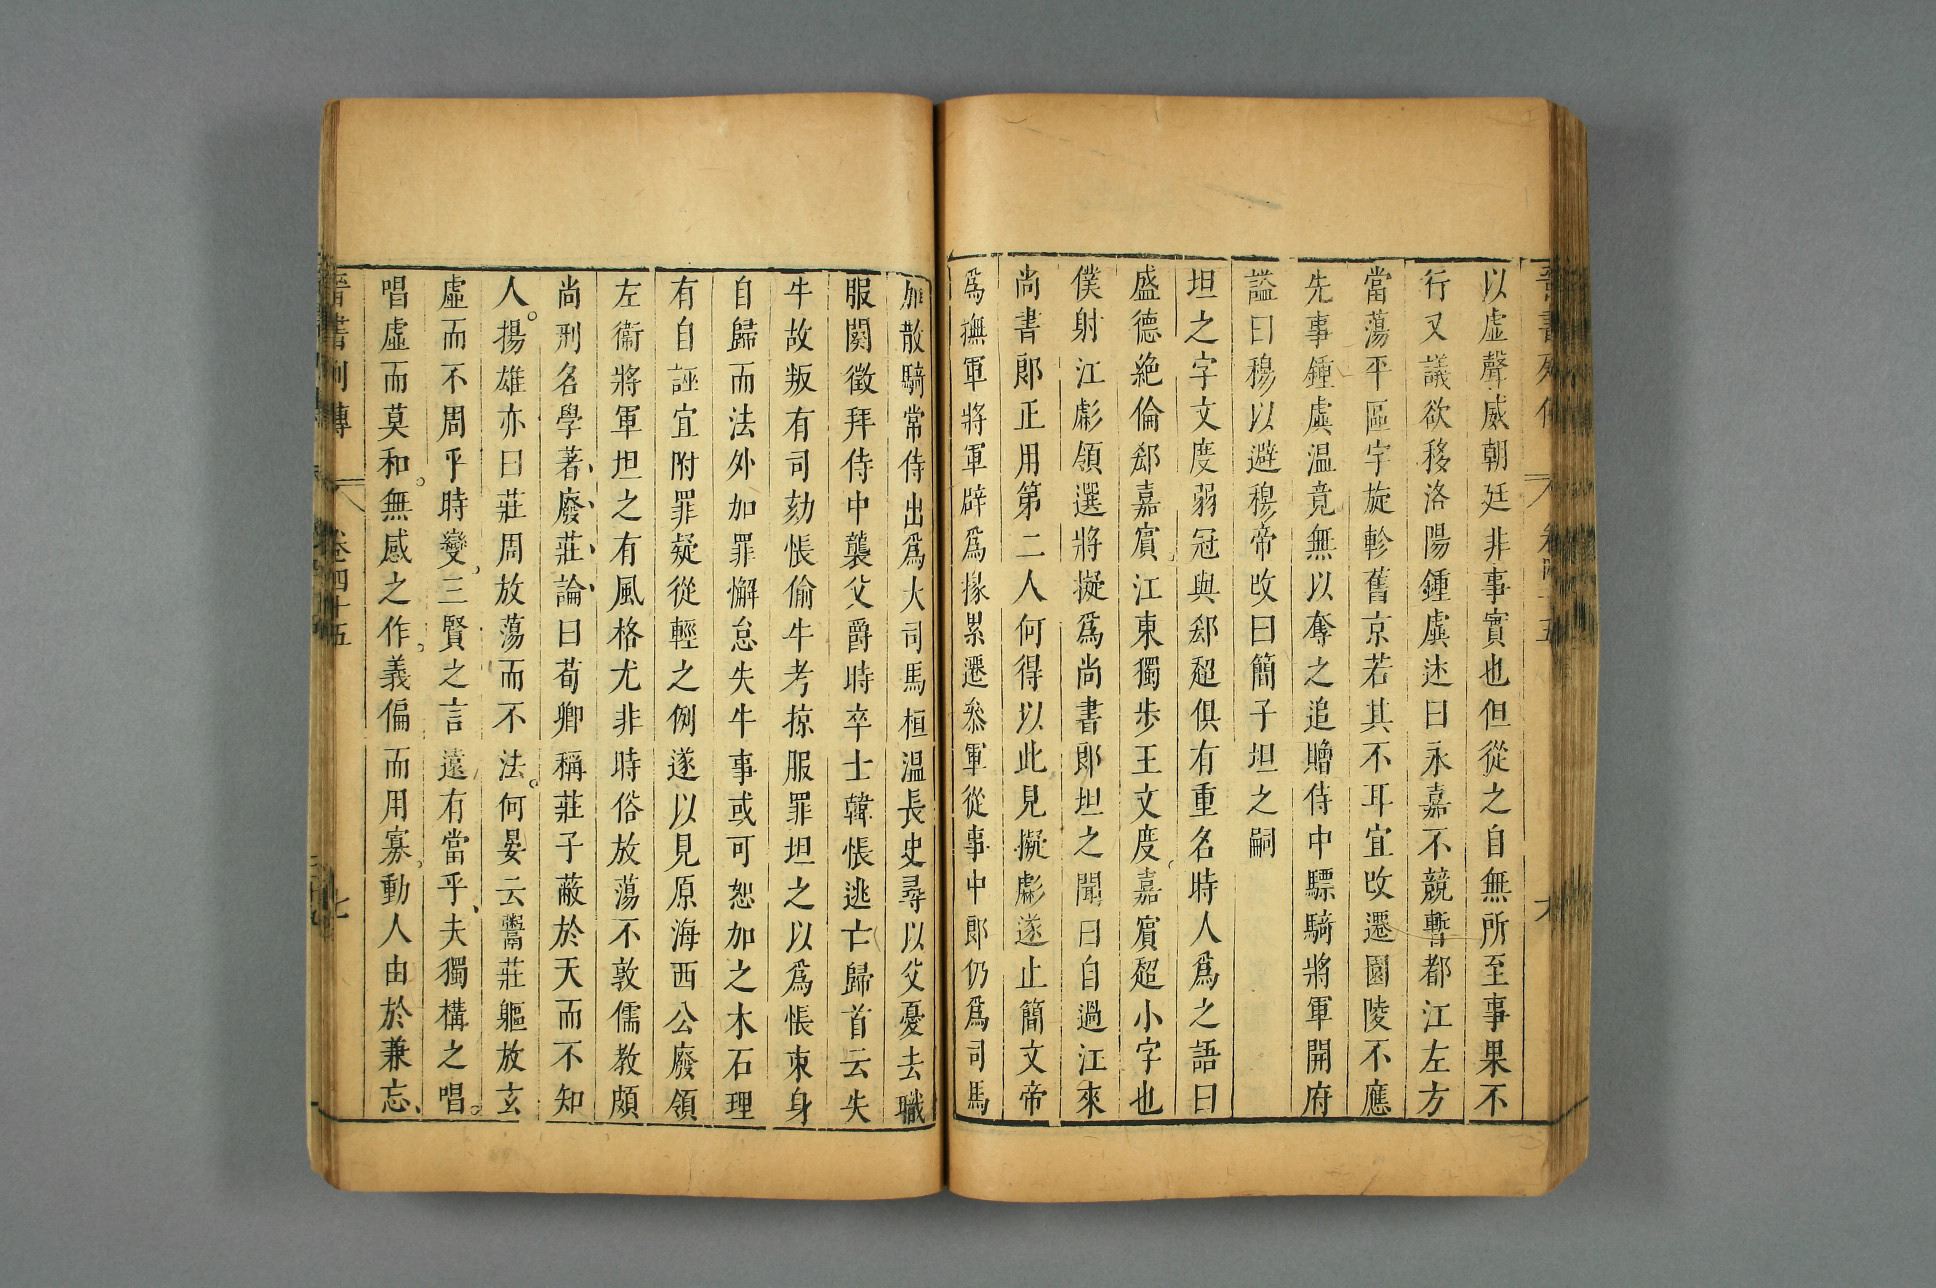 以虛聲威朝廷非事實也但從之自無所至事果不
行又議欲移洛陽鍾虡述曰永嘉不競暫都江左方
當蕩平區宇旋軫舊京若其不耳宜改遷園陵不應
先事鍾虡温竟無以奪之追贈侍中驃騎將軍開府
謚曰穆以避穆帝改曰簡子坦之嗣
坦之字文度弱冠與郄超俱有重名時人爲之語曰
盛德絶倫郄嘉賓江東獨步王文度嘉賓超小字也
僕射江彪領選將擬爲尚書郎坦之聞曰自過江來
尚書郎正用第二人何得以此見擬彪遂止簡文帝
爲撫軍將軍辟爲掾累遷參軍從事中郎仍爲司馬
加散騎常侍出爲大司馬桓温長史尋以父憂去職
服闋徵拜侍中襲父爵時卒士韓悵逃亡歸首云失
牛故叛有司劾悵偷牛考掠服罪坦之以爲悵束身
自歸而法外加罪懈怠失牛事或可恕加之木石理
有自誣宜附罪疑從輕之例遂以見原海西公廢領
左衞將軍坦之有風格尤非時俗放蕩不敦儒教頗
尚刑名學著廢莊論曰荀卿稱莊子蔽於天而不知
人。揚雄亦曰莊周放蕩而不法。何晏云鬻莊軀放玄
虛而不周乎時變、三賢之言遠有當乎、夫獨構之唱。
唱虛而莫和。無感之作。義偏而用寡。動人由於兼忘、
晉書列傳 卷四十五 七